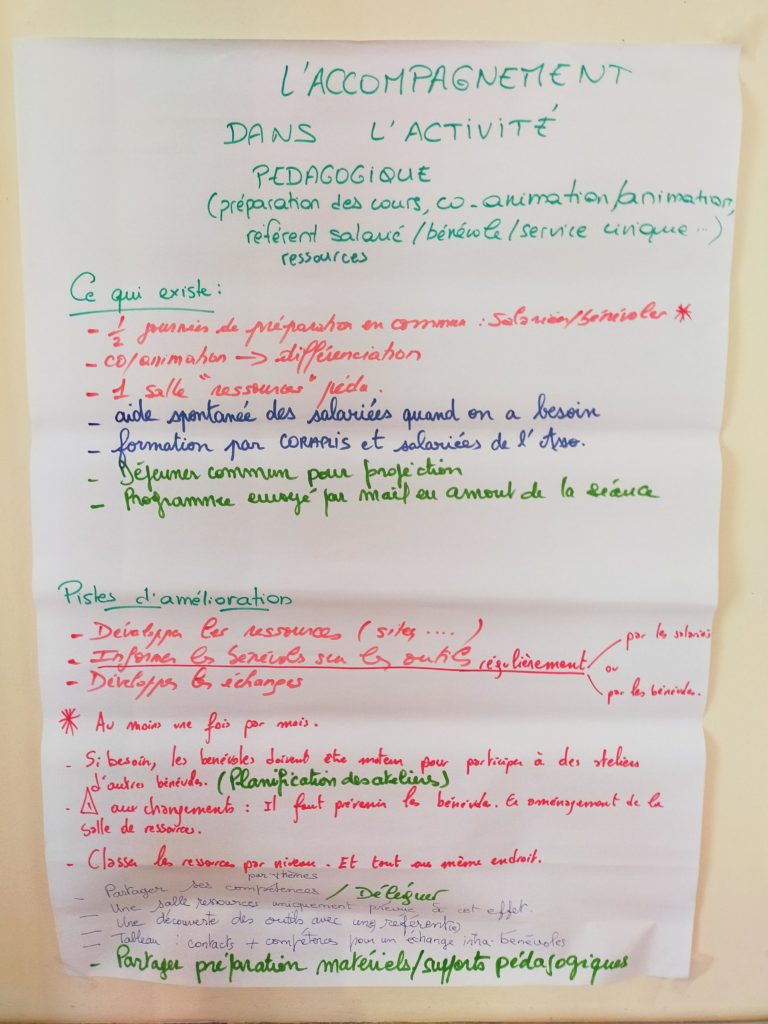 L'ACCOMPAGNEMENT
DANS L'ACTIVITÉ
PEDAGOGIQUE
(préparation des cours, co-animation/animation,
référent salarié /bénévole/service civique...)
ressources
Ce qui existe :
- 1/2 journées de préparation en commun : Salariées/bénévoles *
- co/animation → différenciation
- 1 salle "ressources" péda.
- aide spontanée des salariées quand on a besoin
- formation par CORAPLIS et salariées de l'Asso.
- Déjeuner commun pour projection
- Programme envoyé par mail en amont de la séance
Pistes d'amélioration
- Développer les ressources (sites ....)
- Informer les bénévols sur les outils régulièrement
par les salariés
ou
par les bénévoles.
- Développer les échanges
* Au moins une fois par mois.
- Si besoin, les bénévoles doivent être moteur pour participer à des ateliers
d'autres bénévoles. (Planification des ateliers)
- ⚠ aux changements : Il faut prévenir les bénévoles. Ex aménagement de la
salle de ressources.
- Classer les ressources par niveau. Et tout au même endroit.
par thèmes
- Partager ses compétences / Déléguer
- Une salle ressources uniquement prévue à cet effet.
- Une découverte des outils avec un(e) référent(e)
- Tableau : contacts + compétences pour un échange intra-bénévoles
- Partager préparation matériels/supports pédagogiques